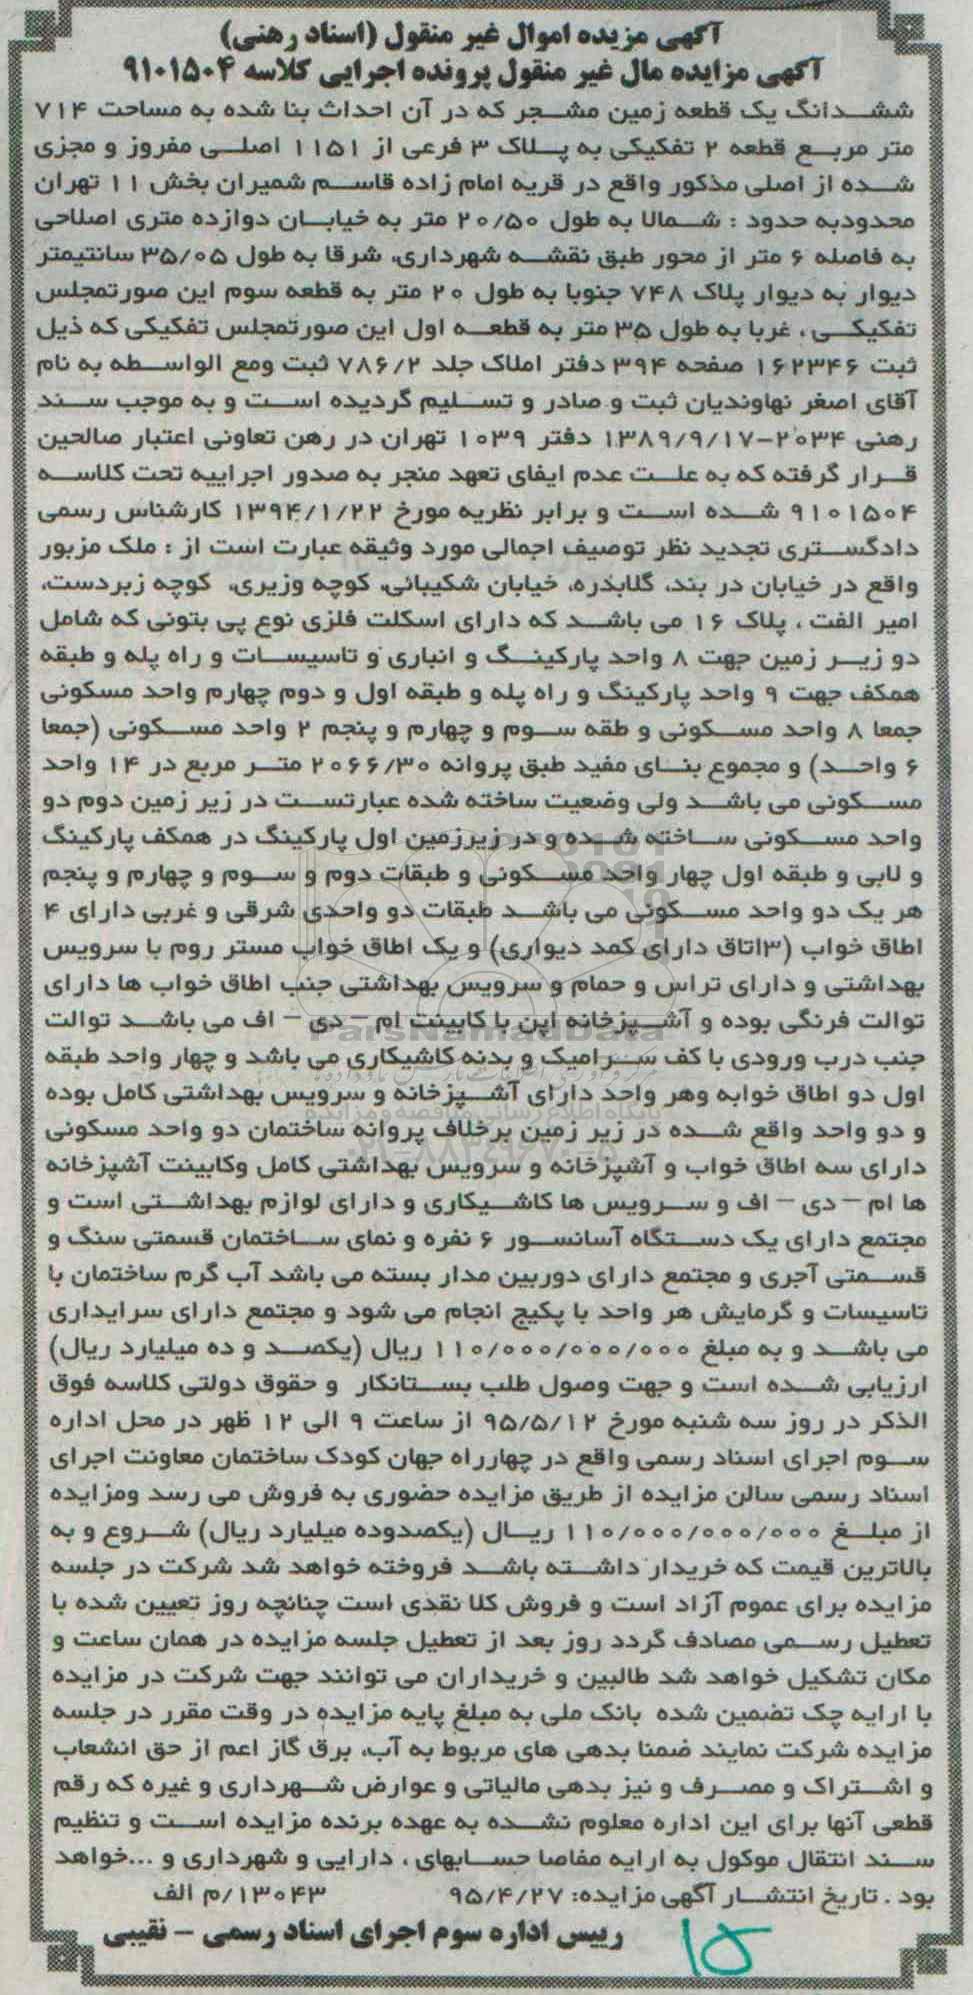 آگهی مزیده اموال غیر منقول (اسناد رهنی)
آگهی مزایده مال غیر منقول پرونده اجرایی کلاسه ۹۱۰۱۵۰۴
ششدانگ یک قطعه زمین مشجر که در آن احداث بنا شده به مساحت ۷۱۴
متر مربع قطعه ۲ تفکیکی به پلاک ۳ فرعی از ۱۱۵۱ اصلی مفروز و مجزی
شده از اصلی مذکور واقع در قریه امام زاده قاسم شمیران بخش ۱۱ تهران
محدودبه حدود : شمالا به طول ۲۰/۵۰ متر به خیابان دوازده متری اصلاحی
به فاصله ۶ متر از محور طبق نقشه شهرداری، شرقا به طول ۳۵/۰۵ سانتیمتر
دیوار به دیوار پلاک ۷۴۸ جنوبا به طول ۲۰ متر به قطعه سوم این صورتمجلس
تفکیکی ، غربا به طول ۳۵ متر به قطعه اول این صورتمجلس تفکیکی که ذیل
ثبت ۱۶۲۳۴۶ صفحه ۳۹۴ دفتر املاک جلد ۷۸۶/۲ ثبت ومع الواسطه به نام
آقای اصغر نهاوندیان ثبت و صادر و تسلیم گردیده است و به موجب سند
رهنی ۲۰۳۴-۱۳۸۹/۹/۱۷ دفتر ۱۰۳۹ تهران در رهن تعاونی اعتبار صالحین
قرار گرفته که به علت عدم ایفای تعهد منجر به صدور اجراییه تحت کلاسه
۹۱۰۱۵۰۴ شده است و برابر نظریه مورخ ۱۳۹۴/۱/۲۲ کارشناس رسمی
دادگستری تجدید نظر توصیف اجمالی مورد وثیقه عبارت است از : ملک مزبور
واقع در خیابان در بند، گلابدره، خیابان شکیبائی، کوچه وزیری، کوچه زبردست،
امیر الفت ، پلاک ۱۶ می باشد که دارای اسکلت فلزی نوع پی بتونی که شامل
دو زیر زمین جهت ۸ واحد پارکینگ و انباری و تاسیسات و راه پله و طبقه
همکف جهت ۹ واحد پارکینگ و راه پله و طبقه اول و دوم چهارم واحد مسکونی
جمعا ۸ واحد مسکونی و طقه سوم و چهارم و پنجم ۲ واحد مسکونی (جمعا
۶ واحد) و مجموع بنای مفید طبق پروانه ۲۰۶۶/۳۰ متر مربع در ۱۴ واحد
مسکونی می باشد ولی وضعیت ساخته شده عبارتست در زیر زمین دوم دو
واحد مسکونی ساخته شده و در زیرزمین اول پارکینگ در همکف پارکینگ
و لابی و طبقه اول چهار واحد مسکونی و طبقات دوم و سوم و چهارم و پنجم
هر یک دو واحد مسکونی می باشد طبقات دو واحدی شرقی و غربی دارای ۴
اطاق خواب (۳اتاق دارای کمد دیواری) و یک اطاق خواب مستر روم با سرویس
بهداشتی و دارای تراس و حمام و سرویس بهداشتی جنب اطاق خواب ها دارای
توالت فرنگی بوده و آشپزخانه اپن با کابینت ام – دی – اف می باشد توالت
جنب درب ورودی با کف سرامیک و بدنه کاشیکاری می باشد و چهار واحد طبقه
اول دو اطاق خوابه وهر واحد دارای آشپزخانه و سرویس بهداشتی کامل بوده
و دو واحد واقع شده در زیر زمین برخلاف پروانه ساختمان دو واحد مسکونی
دارای سه اطاق خواب و آشپزخانه و سرویس بهداشتی کامل وکابینت آشپزخانه
ها ام – دی – اف و سرویس ها کاشیکاری و دارای لوازم بهداشتی است و
مجتمع دارای یک دستگاه آسانسور ۶ نفره و نمای ساختمان قسمتی سنگ و
قسمتی آجری و مجتمع دارای دوربین مدار بسته می باشد آب گرم ساختمان با
تاسیسات و گرمایش هر واحد با پکیج انجام می شود و مجتمع دارای سرایداری
می باشد و به مبلغ ۱۱۰/۰۰۰/۰۰۰/۰۰۰ ریال (یکصد و ده میلیارد ریال)
ارزیابی شده است و جهت وصول طلب بستانکار و حقوق دولتی کلاسه فوق
الذکر در روز سه شنبه مورخ ۹۵/۵/۱۲ از ساعت ۹ الی ۱۲ ظهر در محل اداره
سوم اجرای اسناد رسمی واقع در چهارراه جهان کودک ساختمان معاونت اجرای
اسناد رسمی سالن مزایده از طریق مزایده حضوری به فروش می رسد ومزایده
از مبلغ ۱۱۰/۰۰۰/۰۰۰/۰۰۰ ریال (یکصدوده میلیارد ریال) شروع و به
بالاترین قیمت که خریدار داشته باشد فروخته خواهد شد شرکت در جلسه
مزایده برای عموم آزاد است و فروش کلا نقدی است چنانچه روز تعیین شده با
تعطیل رسمی مصادف گردد روز بعد از تعطیل جلسه مزایده در همان ساعت و
مکان تشکیل خواهد شد طالبین و خریداران می توانند جهت شرکت در مزایده
با ارایه چک تضمین شده بانک ملی به مبلغ پایه مزایده در وقت مقرر در جلسه
مزایده شرکت نمایند ضمنا بدهی های مربوط به آب، برق گاز اعم از حق انشعاب
و اشتراک و مصرف و نیز بدهی مالیاتی و عوارض شهرداری و غیره که رقم
قطعی آنها برای این اداره معلوم نشده به عهده برنده مزایده است و تنظیم
سند انتقال موکول به ارایه مفاصا حسابهای ، دارایی و شهرداری و ...خواهد
بود . تاریخ انتشار آگهی مزایده: ۹۵/۴/۲۷ ۱۳۰۴۳/م الف
رییس اداره سوم اجرای اسناد رسمی – نقیبی
۱۵
ParsNamadData
پایگاه اطلاع رسانی مناقصه و مزایده